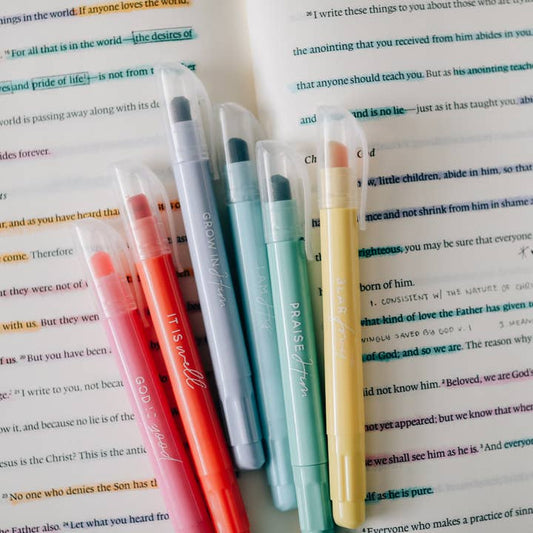 ings in the world. If anyone loves the world,
15 For all that is in the world—the desires of
es and pride of life]—is not from th
world is passing away along with its de
ides forever.
ar, and as you have heard tha
come. Therefore
t they were not of
with us. But they went
f us. 20 But you have been
21 I write to you, not becau
ow it, and because no lie is of the
esus is the Christ? This is the anti
23 No one who denies the Son has th
he Father also. 24 Let what you heard
26 I write these things to you about those who are tryin
the anointing that you received from him abides in you,
that anyone should teach you. But as his anointing teache
and is no lie—just as it has taught you, abi
Chi God
ow, little children, abide in him, so that
ence and not shrink from him in shame a
righteous, you may be sure that everyone
born of him.
1. CONSISTENT W/ THE NATURE OF
what kind of love the Father has given to
SAVED BY GOD V. 1
of God; and so we are. The reason why
did not know him. 2 Beloved, we are God's
not yet appeared; but we know that when
we shall see him as he is. 3 And everyone
lf as he is pure.
4 Everyone who makes a practice of sinn
GOD is good
IT IS well
GROW IN Him
I AM His
PRAISE Him